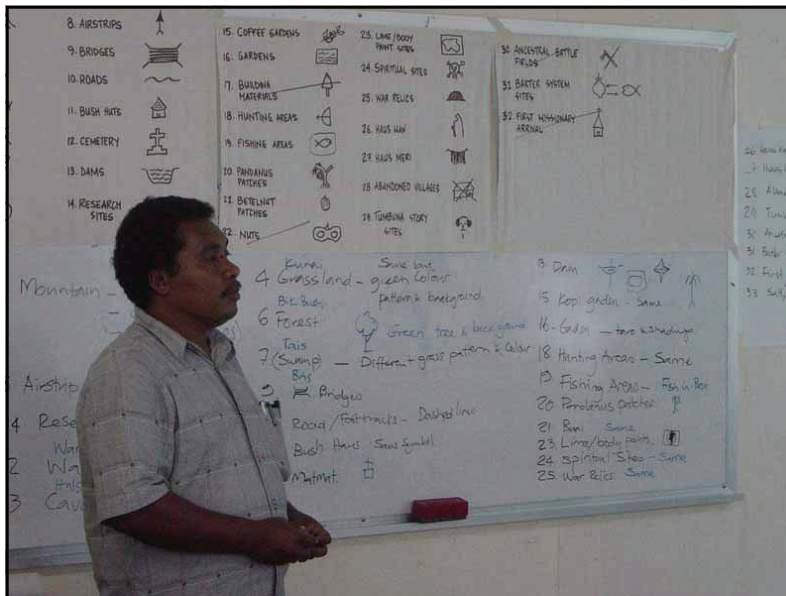 8. AIRSTRIPS
9. BRIDGES
10. ROADS
11. BUSH HUTS
12. CEMETERY
13. DAMS
14. RESEARCH
SITES
15. COFFEE GARDENS
16. GARDENS
17. BUILDING
MATERIALS
18. HUNTING AREAS
19. FISHING AREAS
20. PANDANUS
PATCHES
21. BETELNUT
PATCHES
22. NUTS
23. LIME/BODY
PAINT SITES
24. SPIRITUAL SITES
25. WAR RELICS
26. HAUS MAN
27. HAUS MERI
28. ABANDONED VILLAGES
29. TUMBUNA STORY
SITES
30. ANCESTRAL BATTLE
FIELDS
31. BARTER SYSTEM
SITES
32. FIRST MISSIONARY
ARRIVAL
Mountain -
Airstrip
4 Rese
2 Wa
3 Cav
Kunai
4 Grassland - green Colour
pattern & background
6 Forest
Green tree & background
Tais
7 (Swamp) - Different grass pattern & Colour
Bridges
Road / Foot tracks - Dashed line
Bush Haus Same Symbol
Matmat
Dam
15 Kopi gaden - Same
16 - Gaden
18 Hunting Areas - Same
19 Fishing Areas - Fish in Box
20 Pandanus patches
21 Same
23. Lime/body paints
24 Spiritual Sites - Same
25. War Relics Same
28
29
30
31
32 First
33